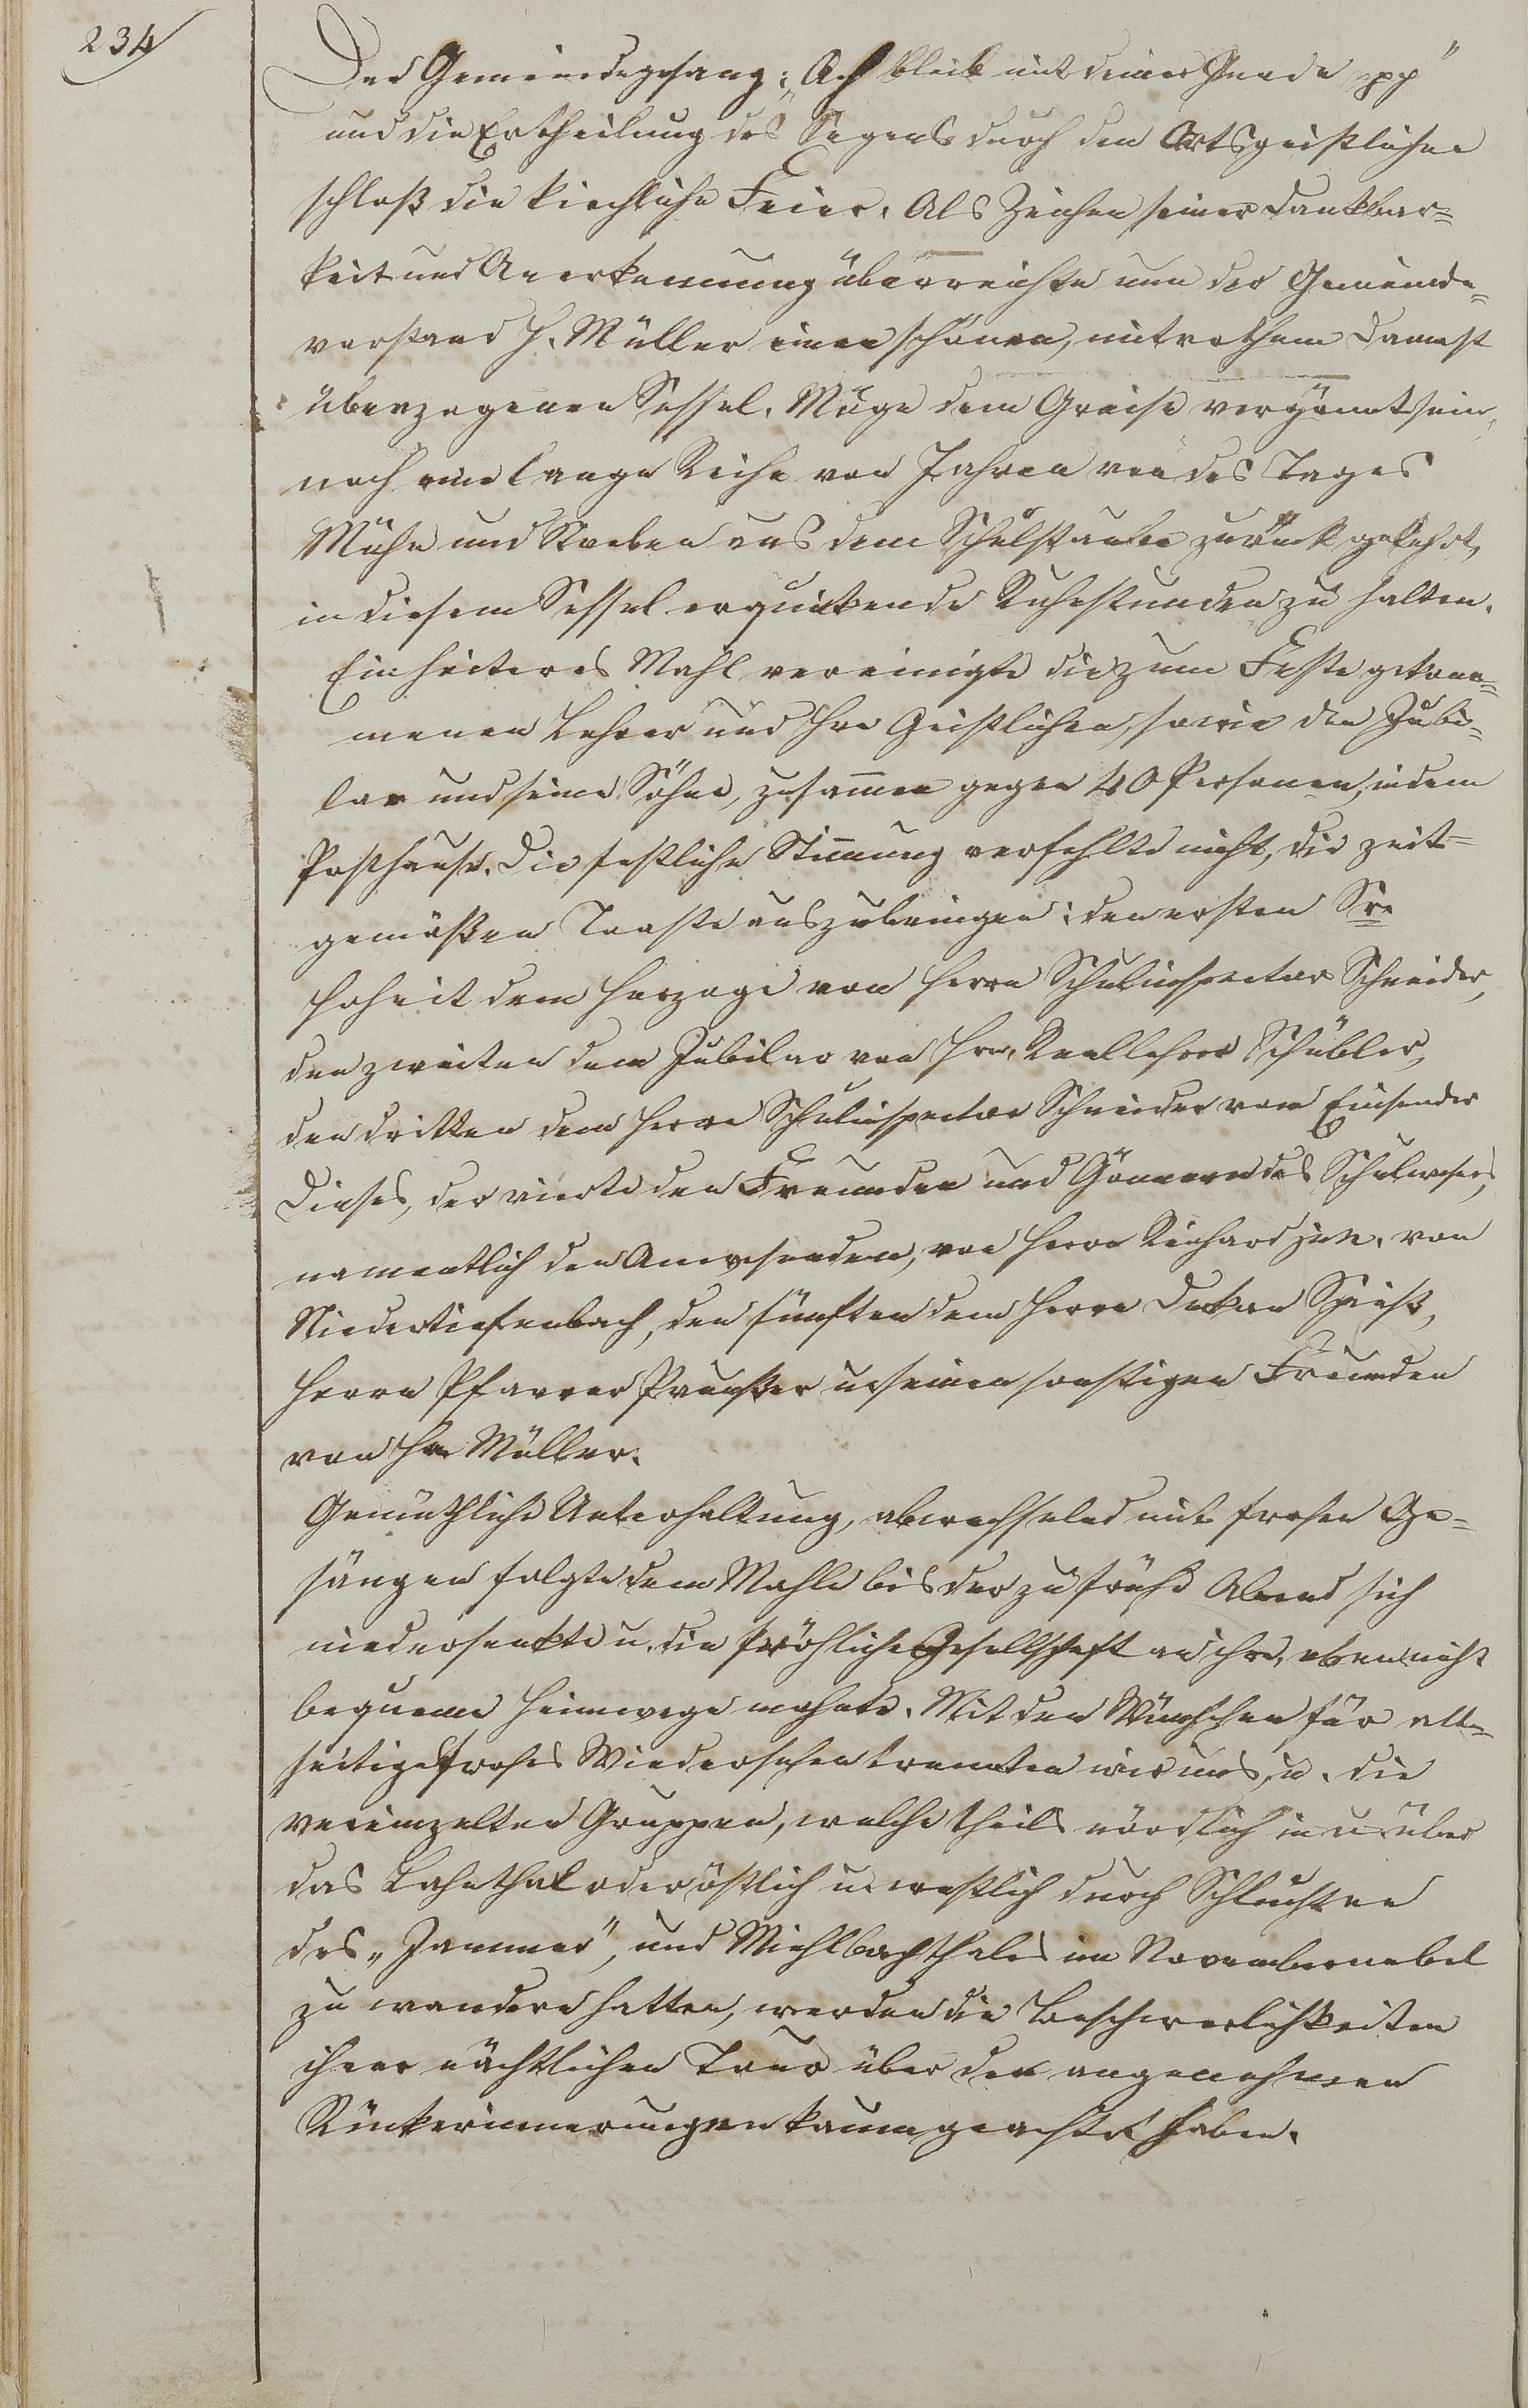 234
Der Gemeindegesang: „Ach bleib mit deiner Gnade ppp"
und die Ertheilung des Segens durch den Ortsgeistlichen
schloß die kirchliche Feier. Als Zeichen seiner Dankbar=
keit und Anerkennung überreichte nun der Gemeinde=
vorstand H. Müller einen schönen, mit rothem Damast
überzogenen Sessel. Möge dem Greise vergönnt sein,
noch eine lange Reihe von Jahren von des Tages
Mühe und Streben aus dem Schulstaube zurück gekehrt,
in diesem Sessel erquickende Ruhestunden zu halten.
Ein heiteres Mahl vereinigte die zum Feste gekom=
menen Lehrer und Hrn Geistlichen, sowie den Jubi=
lar und seine Söhne, zusam̄en gegen 40 Personen, in dem
Posthause. Die festliche Stim̄ung verfehlte nicht, die zeit=
gemäßen Toaste auszubringen: den ersten Sr.
Hoheit dem Herzoge von Herrn Schulinspector Schneider,
den zweiten dem Jubilar von Hrn. Reallehrer Schübler,
den dritten dem Herrn Schulinspector Schneider vom Einsender
Dieses, der vierte den Freunden und Gönnern des Schulwesens,
namentlich den Anwesenden, von Herrn Reichard jun. von
Niedertiefenbach, den fünften dem Herrn Dekan Spieß,
Herrn Pfarrer u. seinen sonstigen Freunden
von Hrn Müller.
Gemüthliche Unterhaltung, abwechselnd mit frohen Ge=
sängen folgte dem Mahle bis der zu frühe Abend sich
niedersenkte u. die fröhliche Gesellschaft an ihre, eben nicht
bequeme Heimwege mahnte. Mit den Wünschen für all=
seitiges frohes Wiedersehen trennten wir uns, u. die
vereinzelten Gruppen, welche theils nördlich in u. über
das Lahnthal oder östlich u. westlich durch Schluchten
des „Jammer", und Mühlbachthales im Novembernebel
zu wandern hatten, werden die Beschwerlichkeiten
ihrer nächtlichen Tour über den angenehmen
Rückerinnerungen kaum geachtet haben.